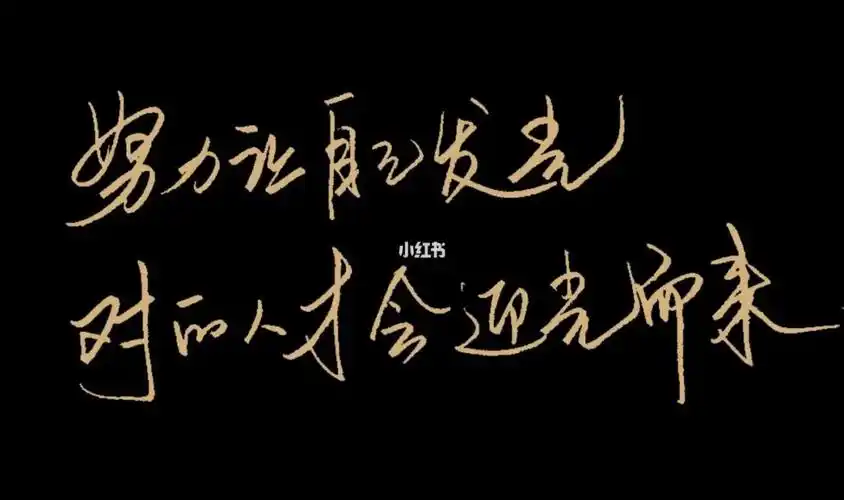 努力让自己发光
小红书
对的人才会迎光而来